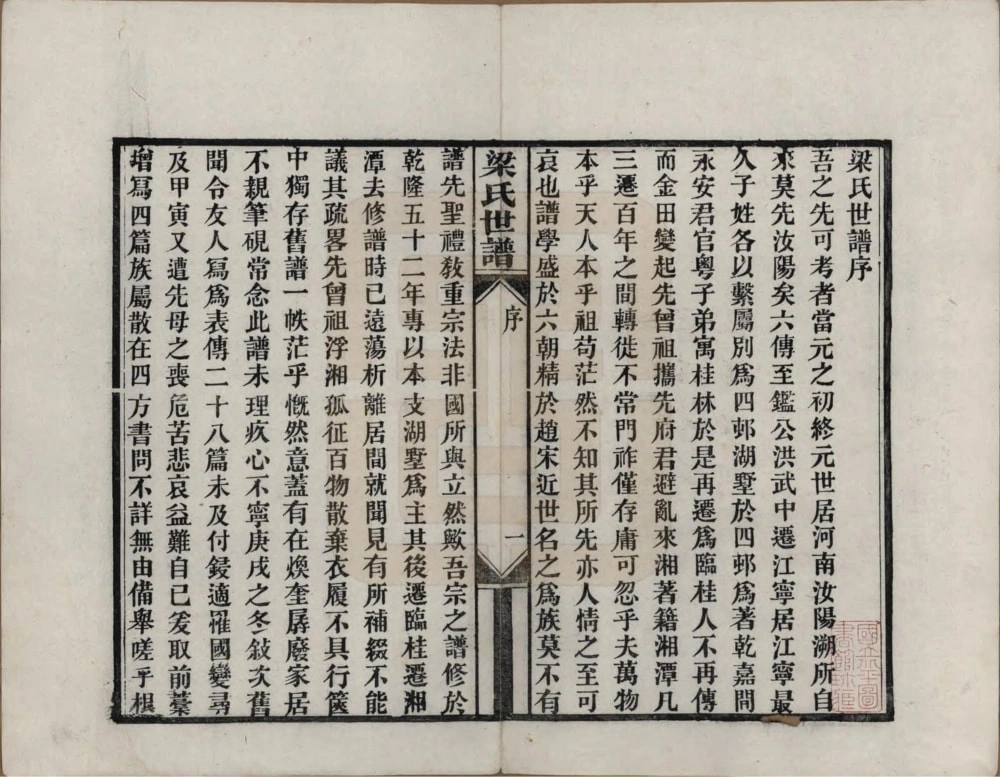 梁氏世譜序
吾之先可考者當元之初終元世居河南汝陽溯所自
來莫先汝陽矣六傳至鑑公洪武中遷江寧居江寧最
久子姓各以繫屬別爲四邨湖墅於四邨爲著乾嘉間
永安君官粵子弟寓桂林於是再遷爲臨桂人不再傳
而金田變起先曾祖攜先府君避亂來湘著籍湘潭凡
三遷百年之間轉徙不常門祚僅存庸可忽乎夫萬物
本乎天人本乎祖苟茫然不知其所先亦人情之至可
哀也譜學盛於六朝精於趙宋近世名之爲族莫不有
梁氏世譜
序
一
譜先聖禮敎重宗法非國所與立然歟吾宗之譜修於
乾隆五十二年專以本支湖墅爲主其後遷臨桂遷湘
潭去修譜時已遠蕩析離居間就聞見有所補綴不能
議其疏畧先曾祖浮湘孤征百物散棄衣履不具行篋
中獨存舊譜一帙茫乎慨然意蓋有在煥奎孱廢家居
不親筆硯常念此譜未理疚心不寧庚戌之冬敍次舊
聞令友人寫爲表傳二十八篇未及付鋟適罹國變尋
及甲寅又遭先母之喪危苦悲哀益難自已爰取前藁
增寫四篇族屬散在四方書問不詳無由備舉嗟乎椇